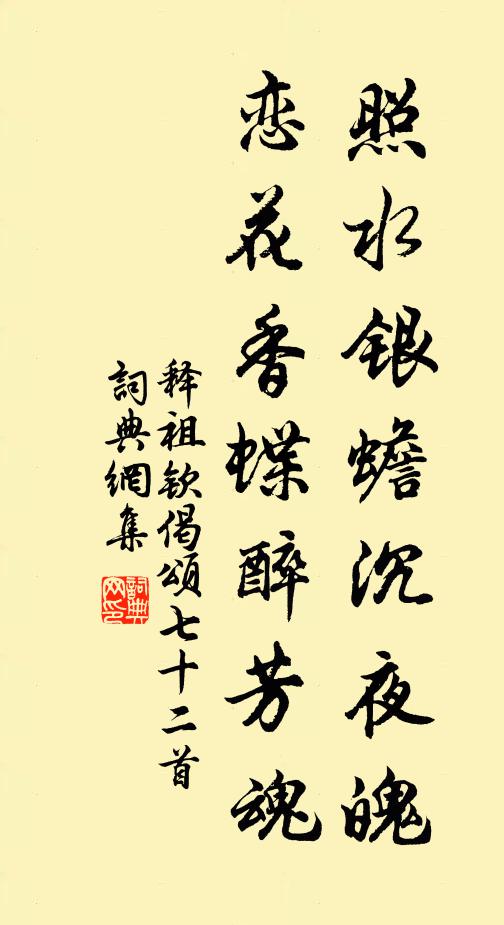 照水银蟾沉夜魄
恋花香蝶醉芳魂
释祖钦偈颂七十二首
詞典網集
詞典
网印